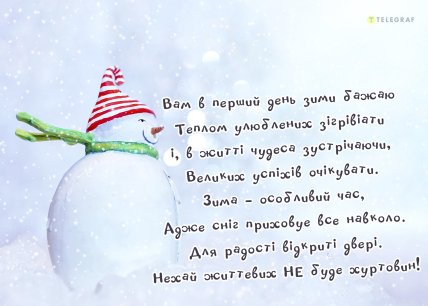 TELEGRAF
Вам в перший день зими бажаю
Теплом улюблених зігрівіати
і, в житті чудеса зустрічаючи,
Великих успіхів очікувати.
Зима – особливий час,
Адже сніг приховує все навколо.
Для радості відкриті двері.
Нехай життєвих НЕ буде хуртовин!